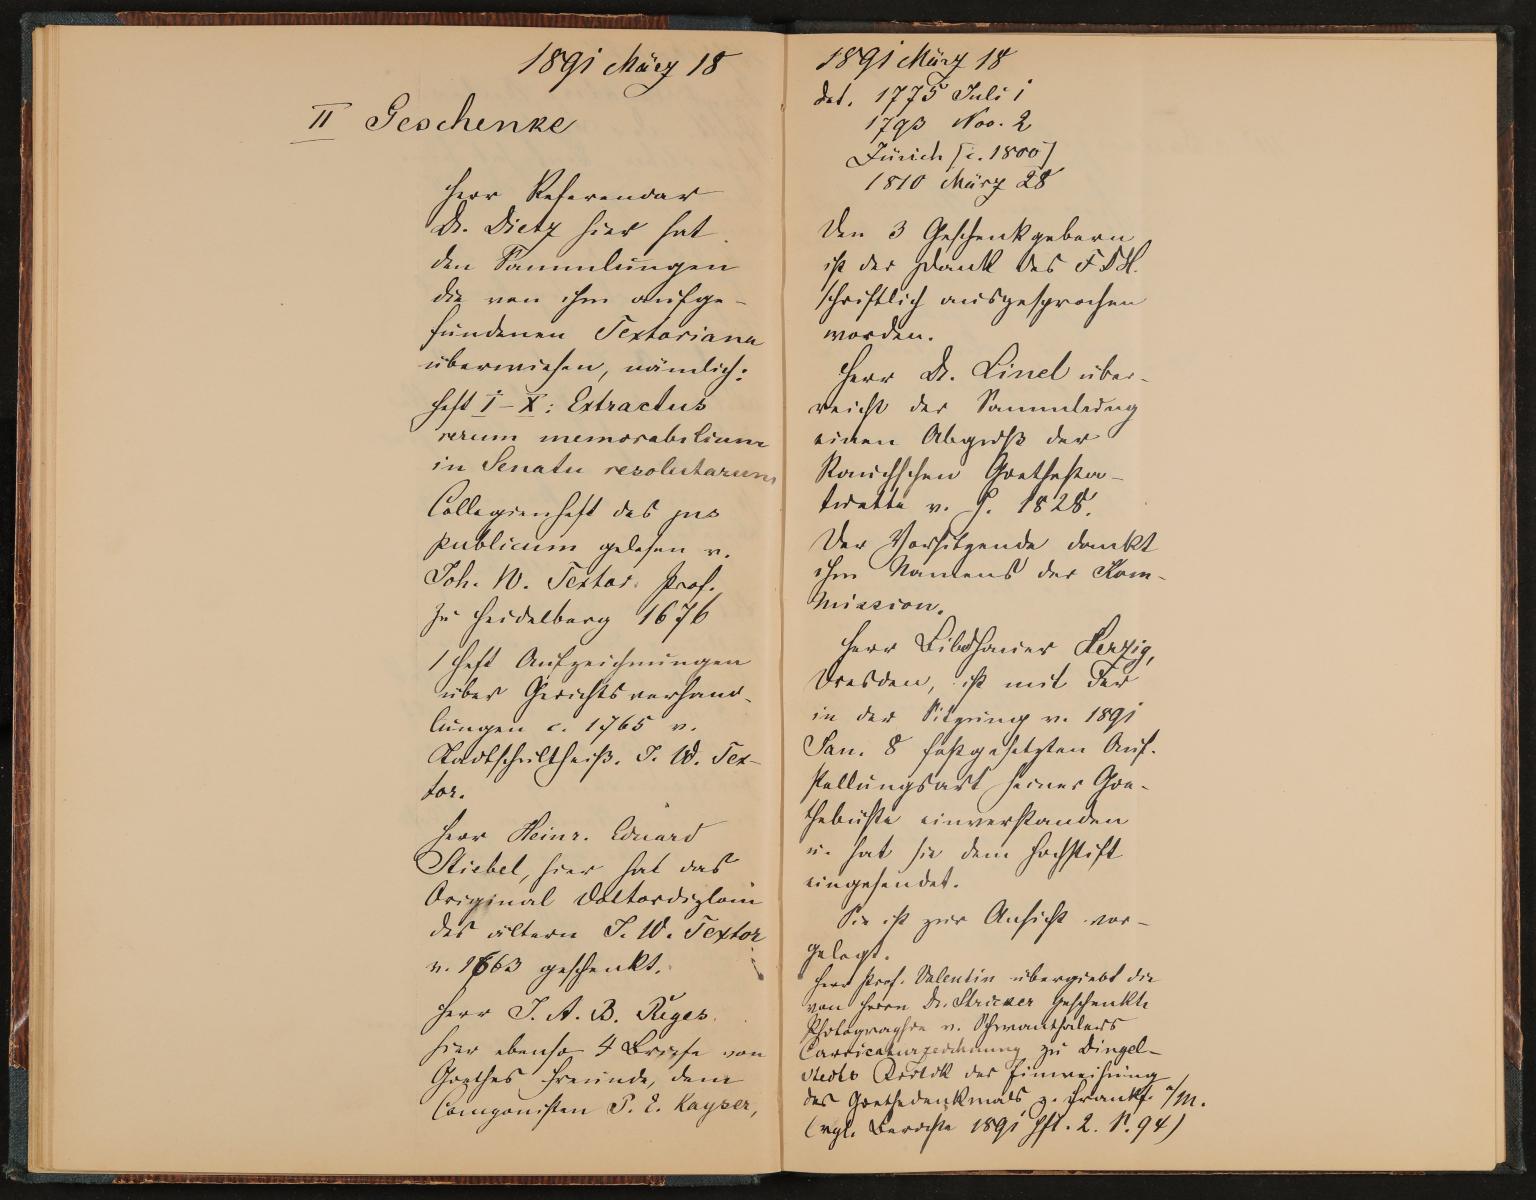 1891 März 18
II Geschenke
Herr Referendar
Dr. Dietz hier hat
den Sammlungen
die von ihm aufge-
fundenen Textoriana
überwiesen, nämlich:
Heft I-X: Extractus
rerum memorabilium
in Senatu resolutarum
Collegienheft des jus
publicum gelesen v.
Joh. W. Textor. Prof.
zu Heidelberg 1676
1 Heft Aufzeichnungen
über Gerichtsverhand-
lungen c. 1765 v.
Stadtschultheiß. J. W. Tex-
tor.
Herr Heinr. Eduard
Stiebel, hier hat das
Original Doktordiplom
des ältern J. W. Textor
v. 1663 geschenkt.
Herr J. A. B. Rüger
hier ebenso 4 Briefe von
Goethes Freunde, dem
Componisten P. C. Kayser,
1891 März 18
dat. 1775 Juli 1
1793 Nov. 2
Zürich [c. 1800]
1810 März 28
Den 3 Geschenkgebern
ist der Dank des FDH.
schriftlich ausgesprochen
worden.
Herr Dr. Linel über-
reicht der Sammlung
einen Abguß der
Rauchschen Goethesta-
tuette v. J. 1828.
Der Vorsitzende dankt
ihm Namens der Kom-
mission.
Herr Bildhauer Herzig,
Dresden, ist mit der
in der Sitzung v. 1891
Jan. 8 festgesetzten Auf-
stellungsart seiner Goe-
thebüste einverstanden
u. hat sie dem Hochstift
eingesendet.
Sie ist zur Ansicht vor-
gelegt.
Herr Prof. Valentin übergiebt die
von Herrn Dr. Stricker geschenkte
Photographie v. Schwanthalers
Carricaturzeichnung zu Dingel-
stedts Kritik der Einweihung
des Goethedenkmals z. Frankf. a/M.
(vgl. Berichte 1891 Hft. 2. S. 94)